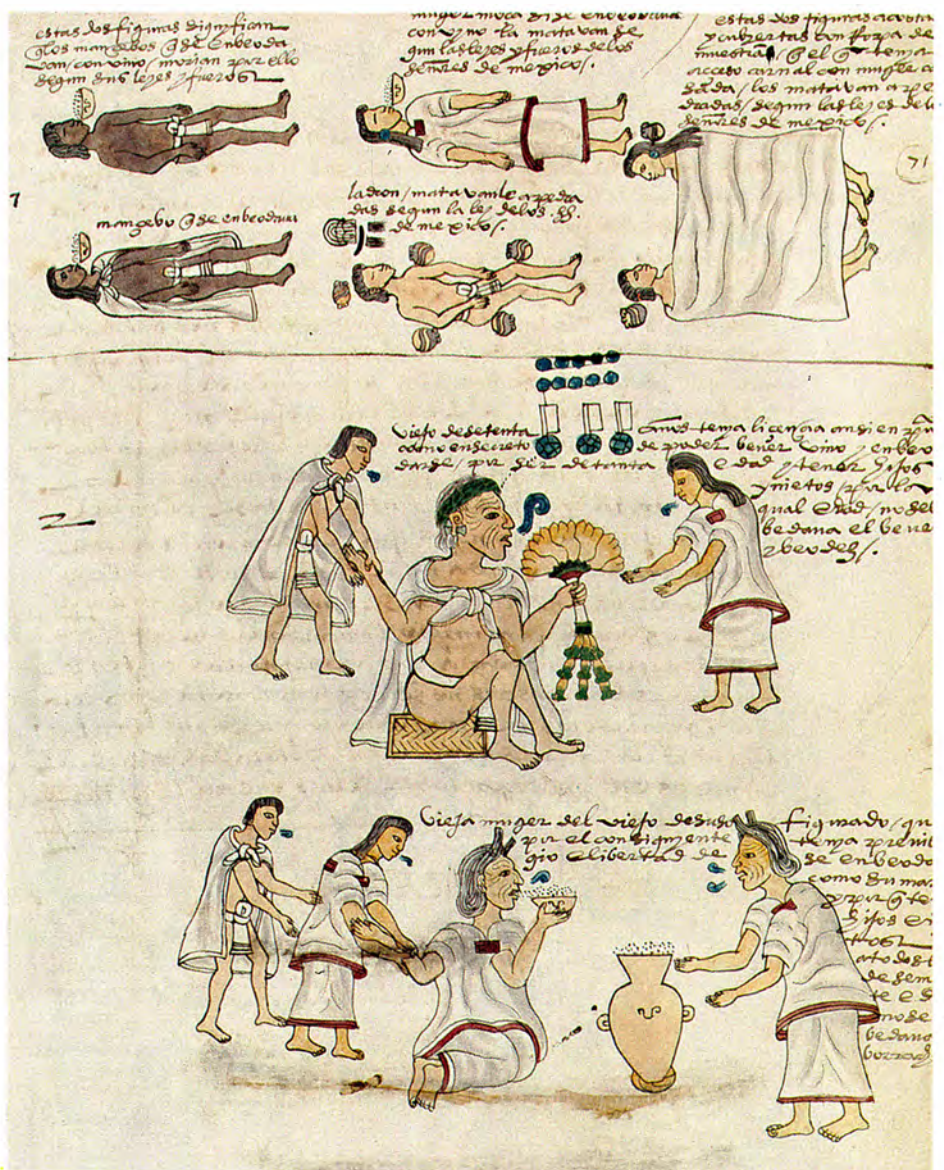 estas dos figuras significan
q los mancebos q se enbeoda
van / con vino / morian por ello
segun sus leyes y fueros
muger moça si se enbeodava
con vyno la matavan se
gun las leyes y fueros de los
señores de mexico /.
estas dos figuras acosta
y cubiertas con ropa de
muestrā q el q tenia
acceso carnal con muger ca
sada / los matavan a pe
dradas / segun las leyes de l
señores de mexico /.
71
7
mancebo q se enbeodava
ladron / matavanle a pedra
das segun la ley de los .ss.
de mexico /.
viejo de setenta
años tenia licençia ansi en pu
como en secreto
de poder bever vino y enbeo
darse / por ser de tanta
edad y tener hijos
y nietos / por la
qual edad / no se l
bedava el beve
2
Vieja muger del viejo de suso
figurado / qu
por el consiguyente
tenia previl
gio e libertad de
se enbeod
como su ma
y por q te
hijos e
de
bedava